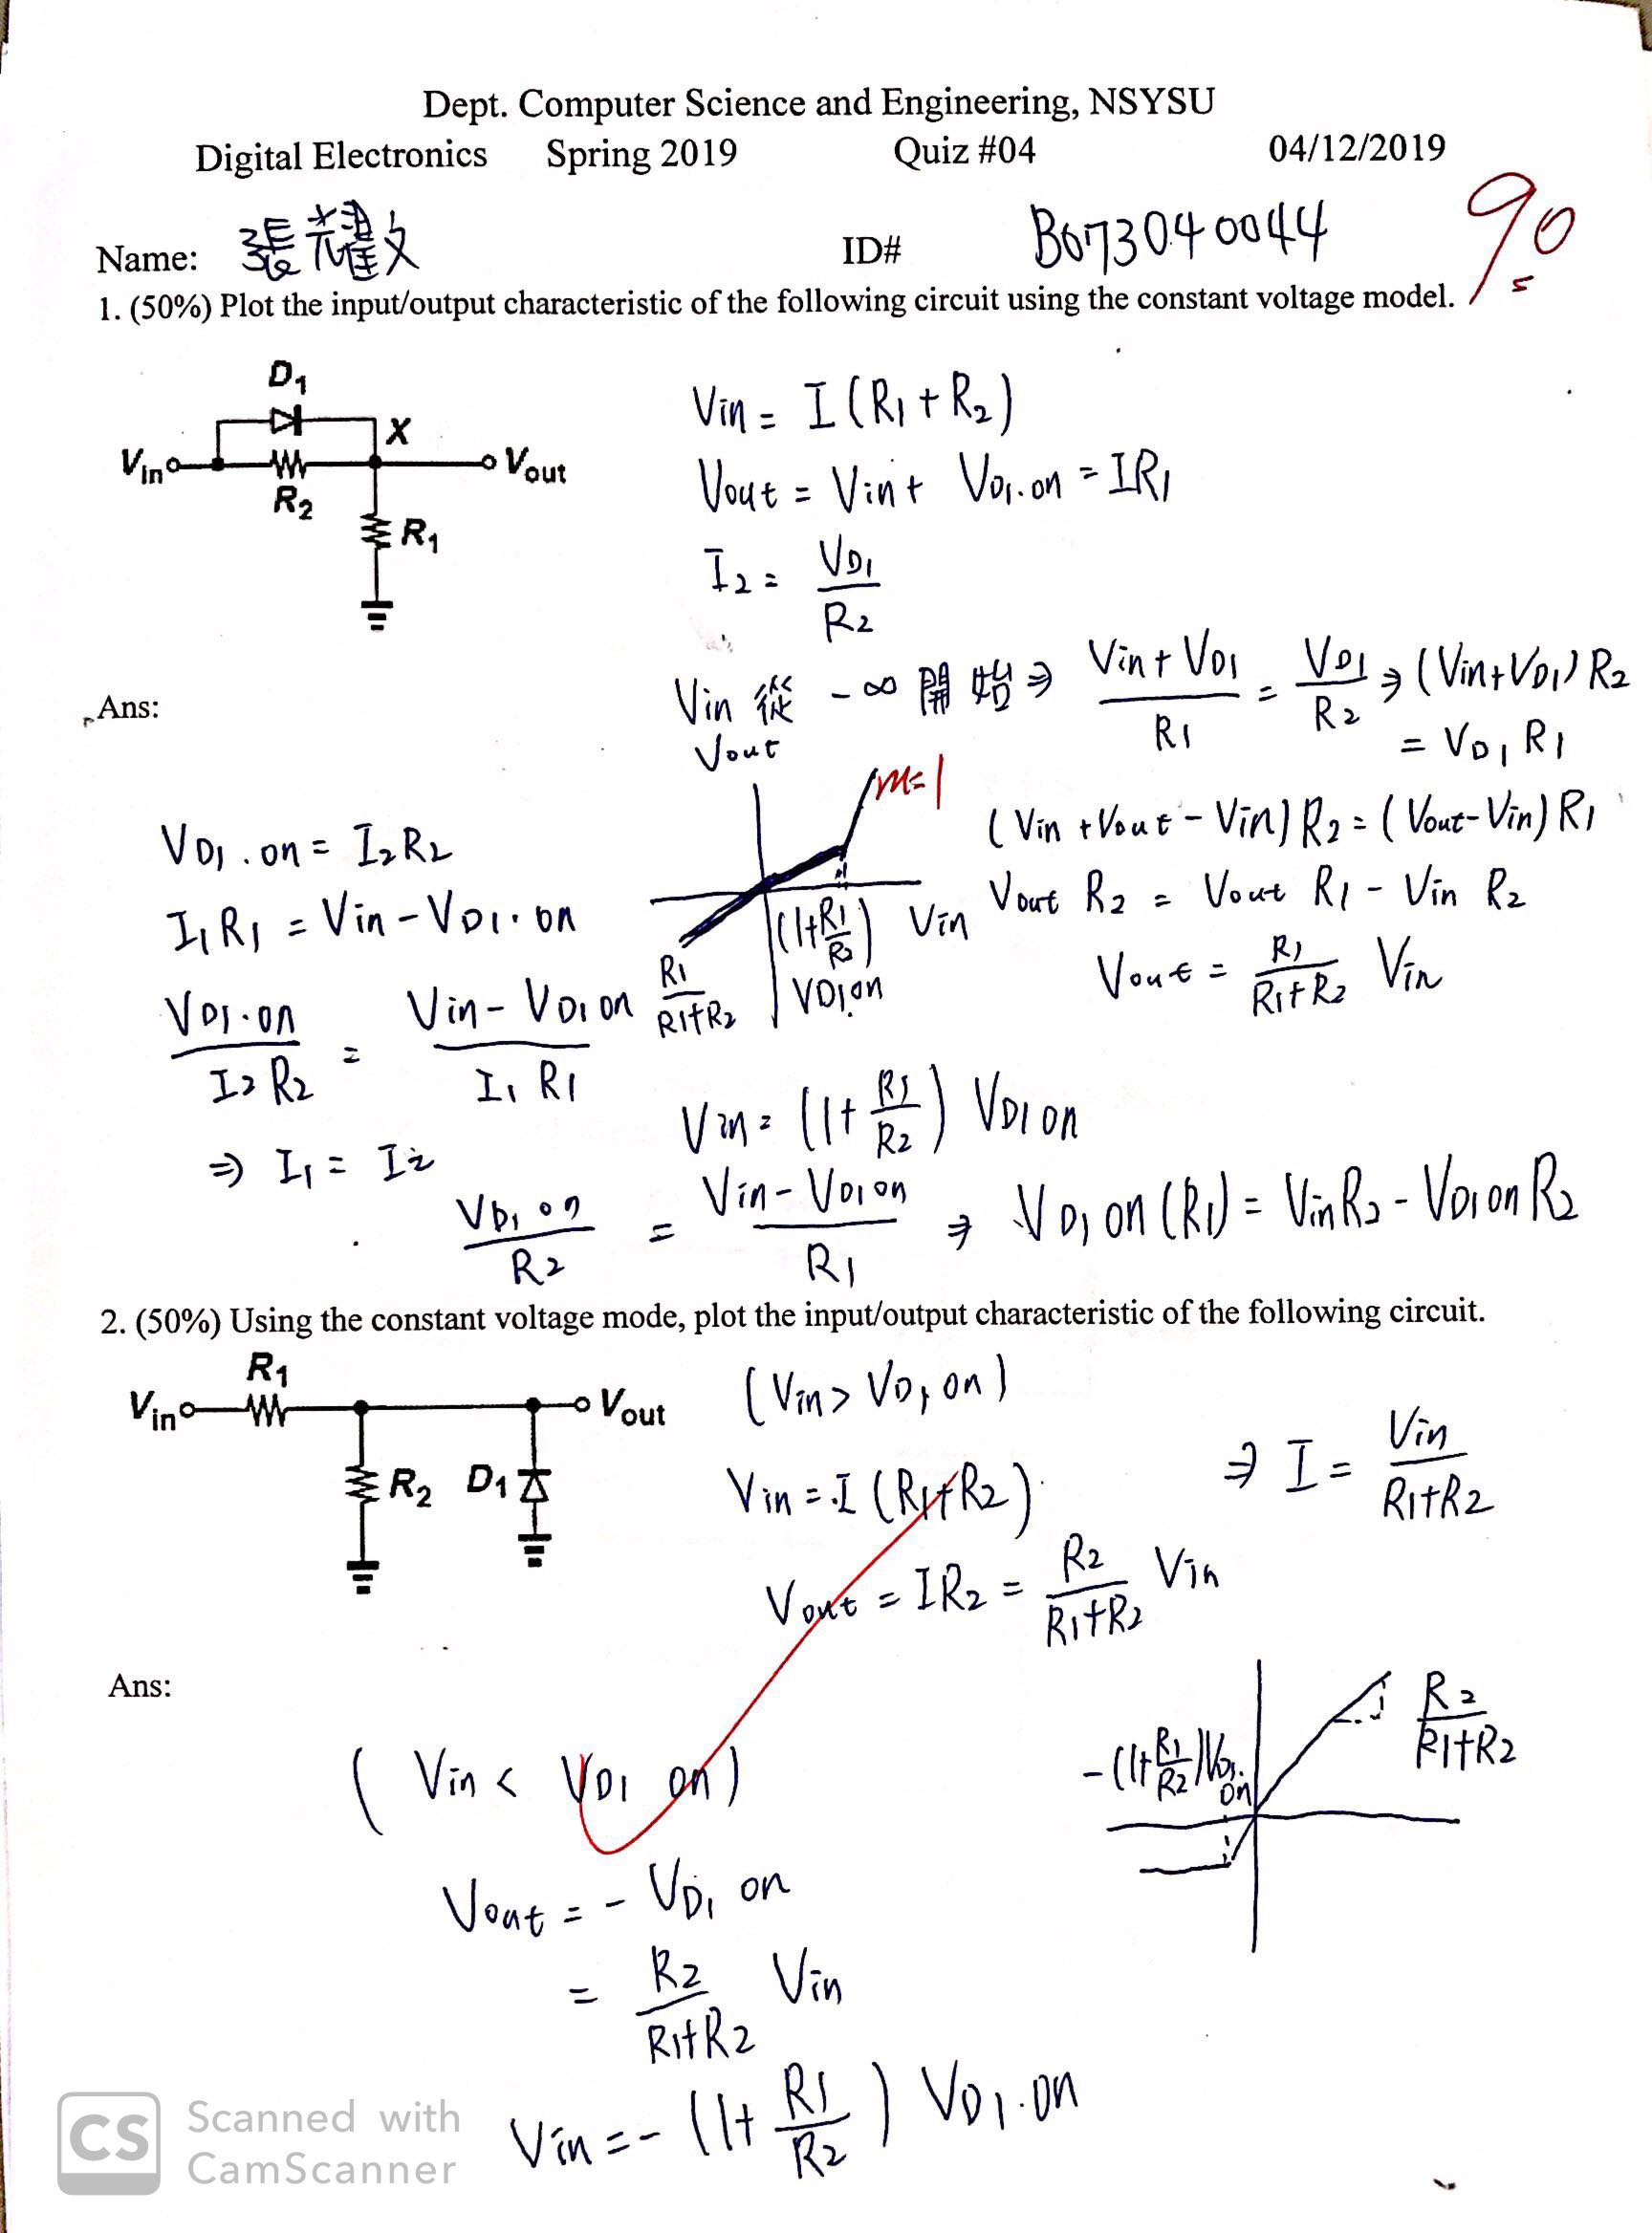 Dept. Computer Science and Engineering, NSYSU
Digital Electronics Spring 2019 Quiz #04 04/12/2019
Name: 張耀文 ID# B073040044 90
5
1. (50%) Plot the input/output characteristic of the following circuit using the constant voltage model.
D1
X
Vin Vout
R2
R1
Vin = I (R1 + R2)
Vout = Vin + VD1.on = IR1
I2 = VD1 / R2
Vin 從 -∞ 開始 ⇒ (Vin + VD1) / R1 = VD1 / R2 ⇒ (Vin + VD1) R2
= VD1 R1
Ans:
Vout
m=1
(Vin + Vout - Vin) R2 = (Vout - Vin) R1
VD1.on = I2R2
Vout R2 = Vout R1 - Vin R2
I1R1 = Vin - VD1.on
Vin
(1+R1/R2) VD1on
R1/(R1+R2)
Vout = R1/(R1+R2) Vin
VD1.on / I2R2 = Vin - VD1on / I1R1
Vin = (1+ R1/R2) VD1on
⇒ I1 = I2
VD1on / R2 = Vin - VD1on / R1 ⇒ VD1on (R1) = VinR2 - VD1on R2
2. (50%) Using the constant voltage mode, plot the input/output characteristic of the following circuit.
R1
Vin Vout
R2 D1
(Vin > VD1on)
Vin = I (R1+R2) ⇒ I = Vin / (R1+R2)
Vout = IR2 = R2/(R1+R2) Vin
Ans:
R2/(R1+R2)
-(1+R1/R2)VD1.on
(Vin < VD1 on)
Vout = - VD1 on
= R2/(R1+R2) Vin
Vin = - (1+ R1/R2) VD1.on
CS Scanned with
CamScanner